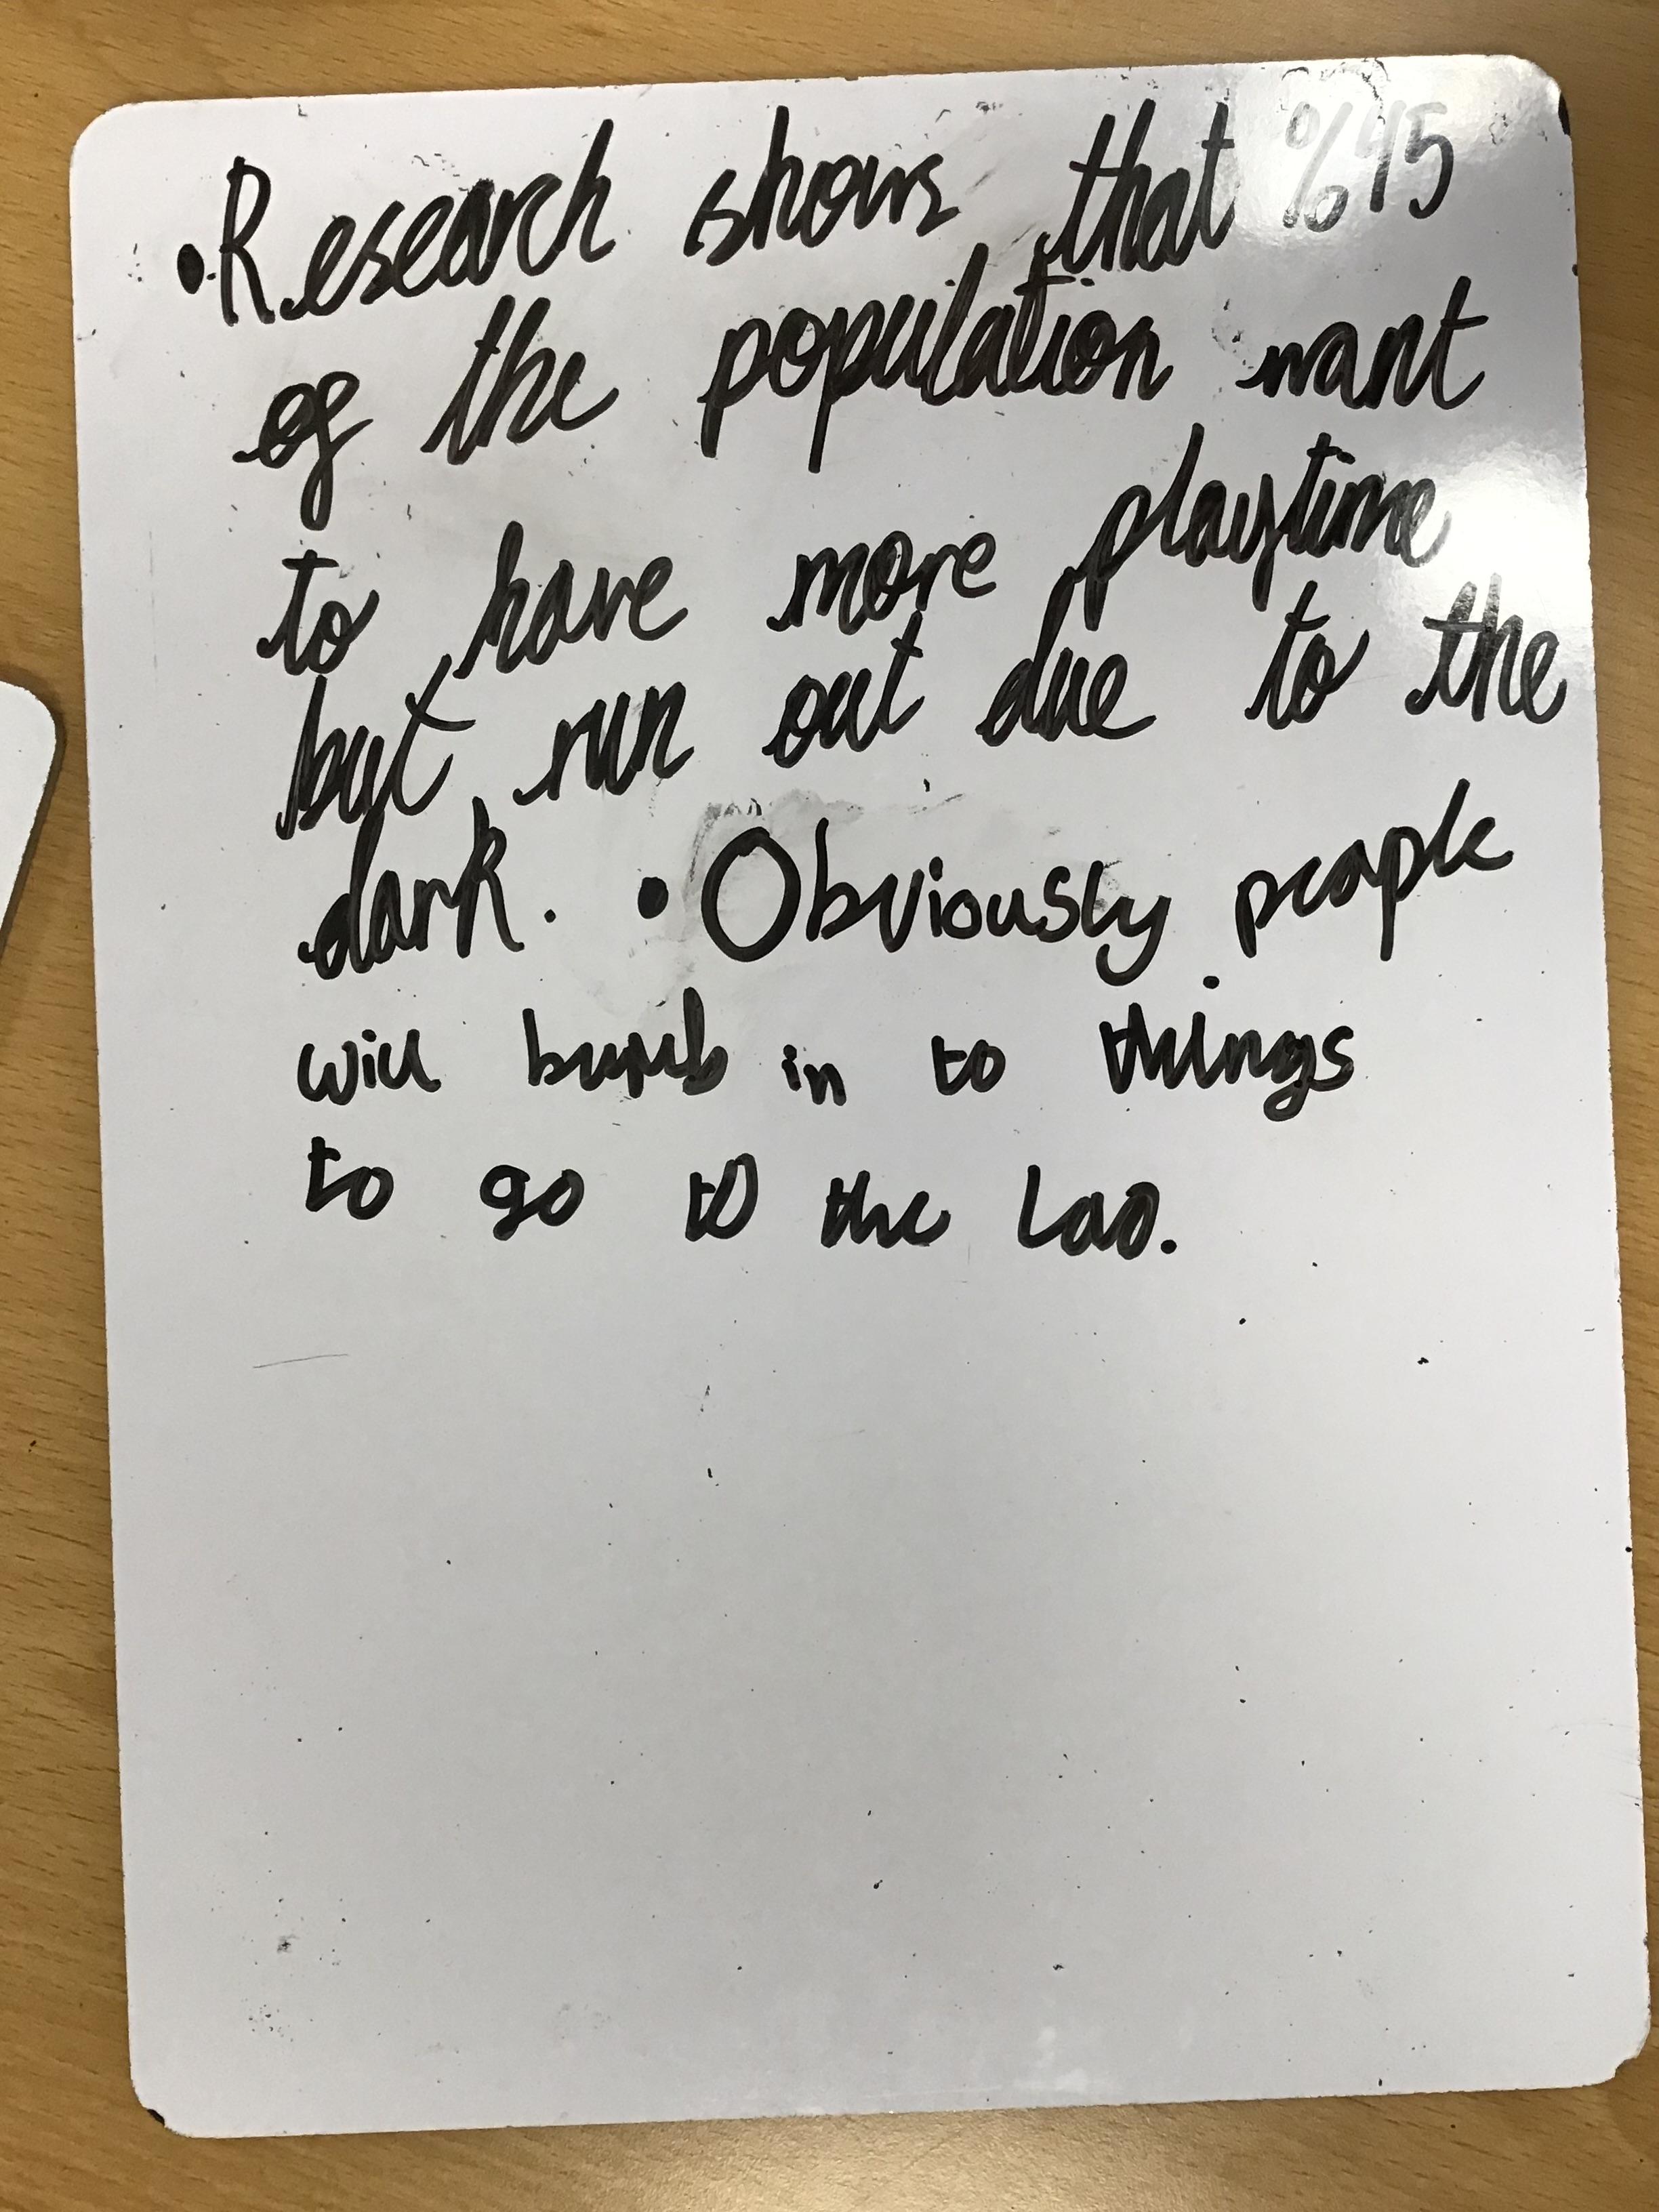 • Research shows that %45
of the population want
to have more playtime
but run out due to the
dark. • Obviously people
will bumb in to things
to go to the Loo.